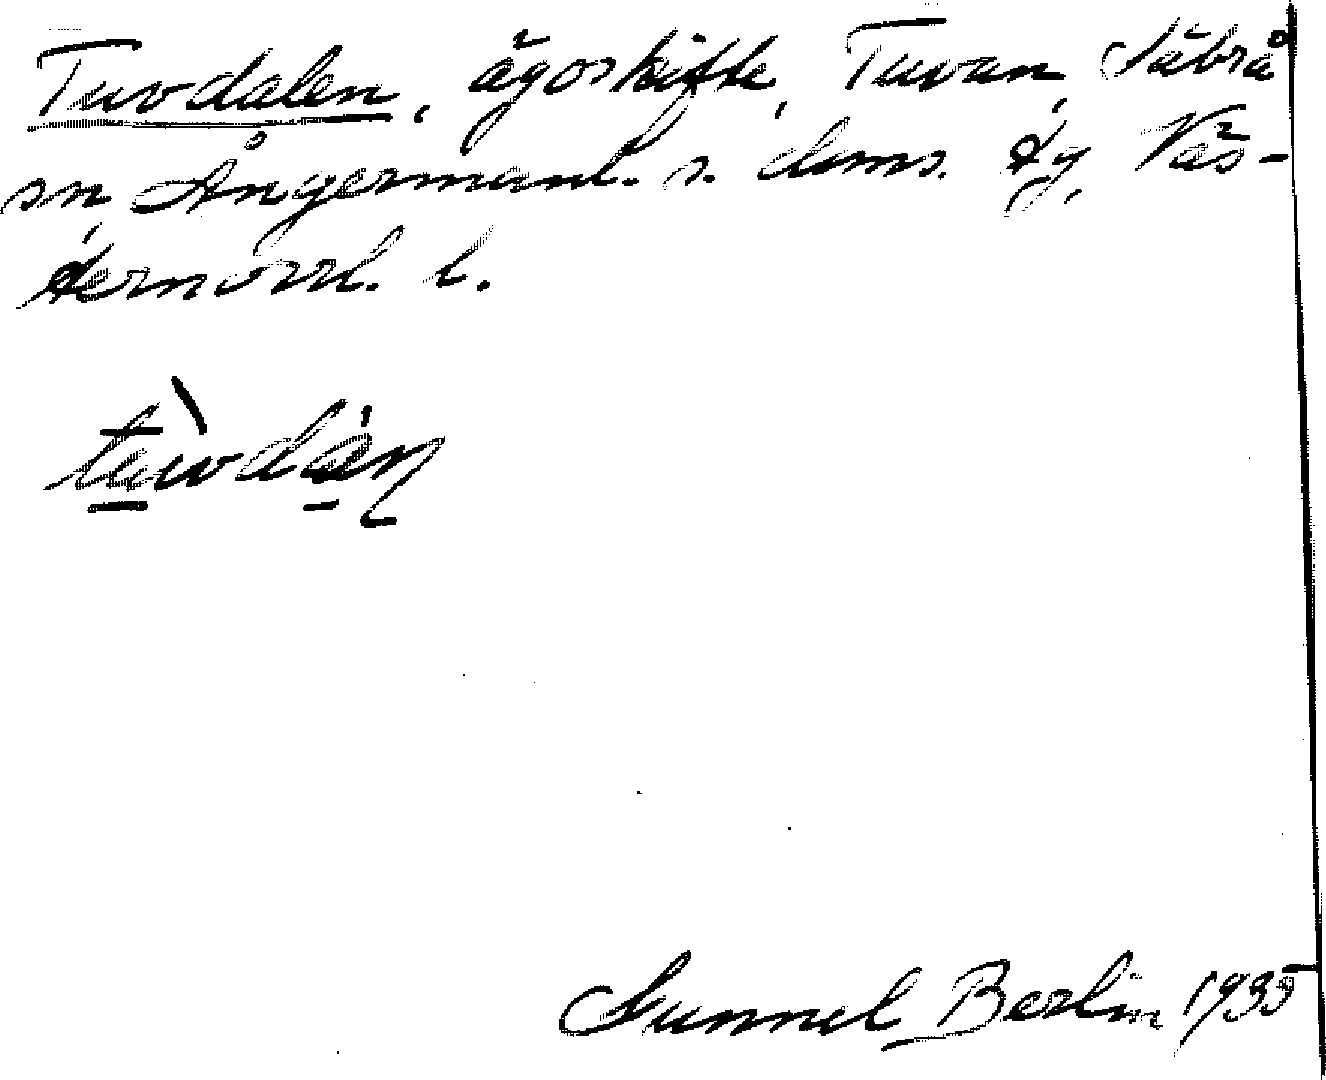 Tuvdalen, ägoskifte, Tuvan, Säbrå
sn, Ångermanl. s. doms. tg, Väs-
ternorrl. l.
tùvdán
Gunnel Berlin 1935